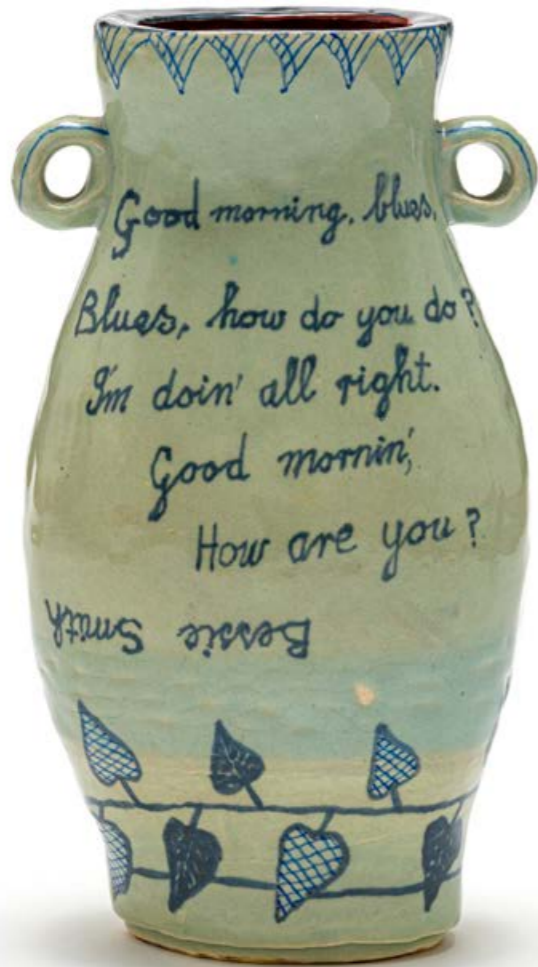 Good morning, blues,
Blues, how do you do?
I'm doin' all right.
Good mornin',
How are you?
Bessie Smith